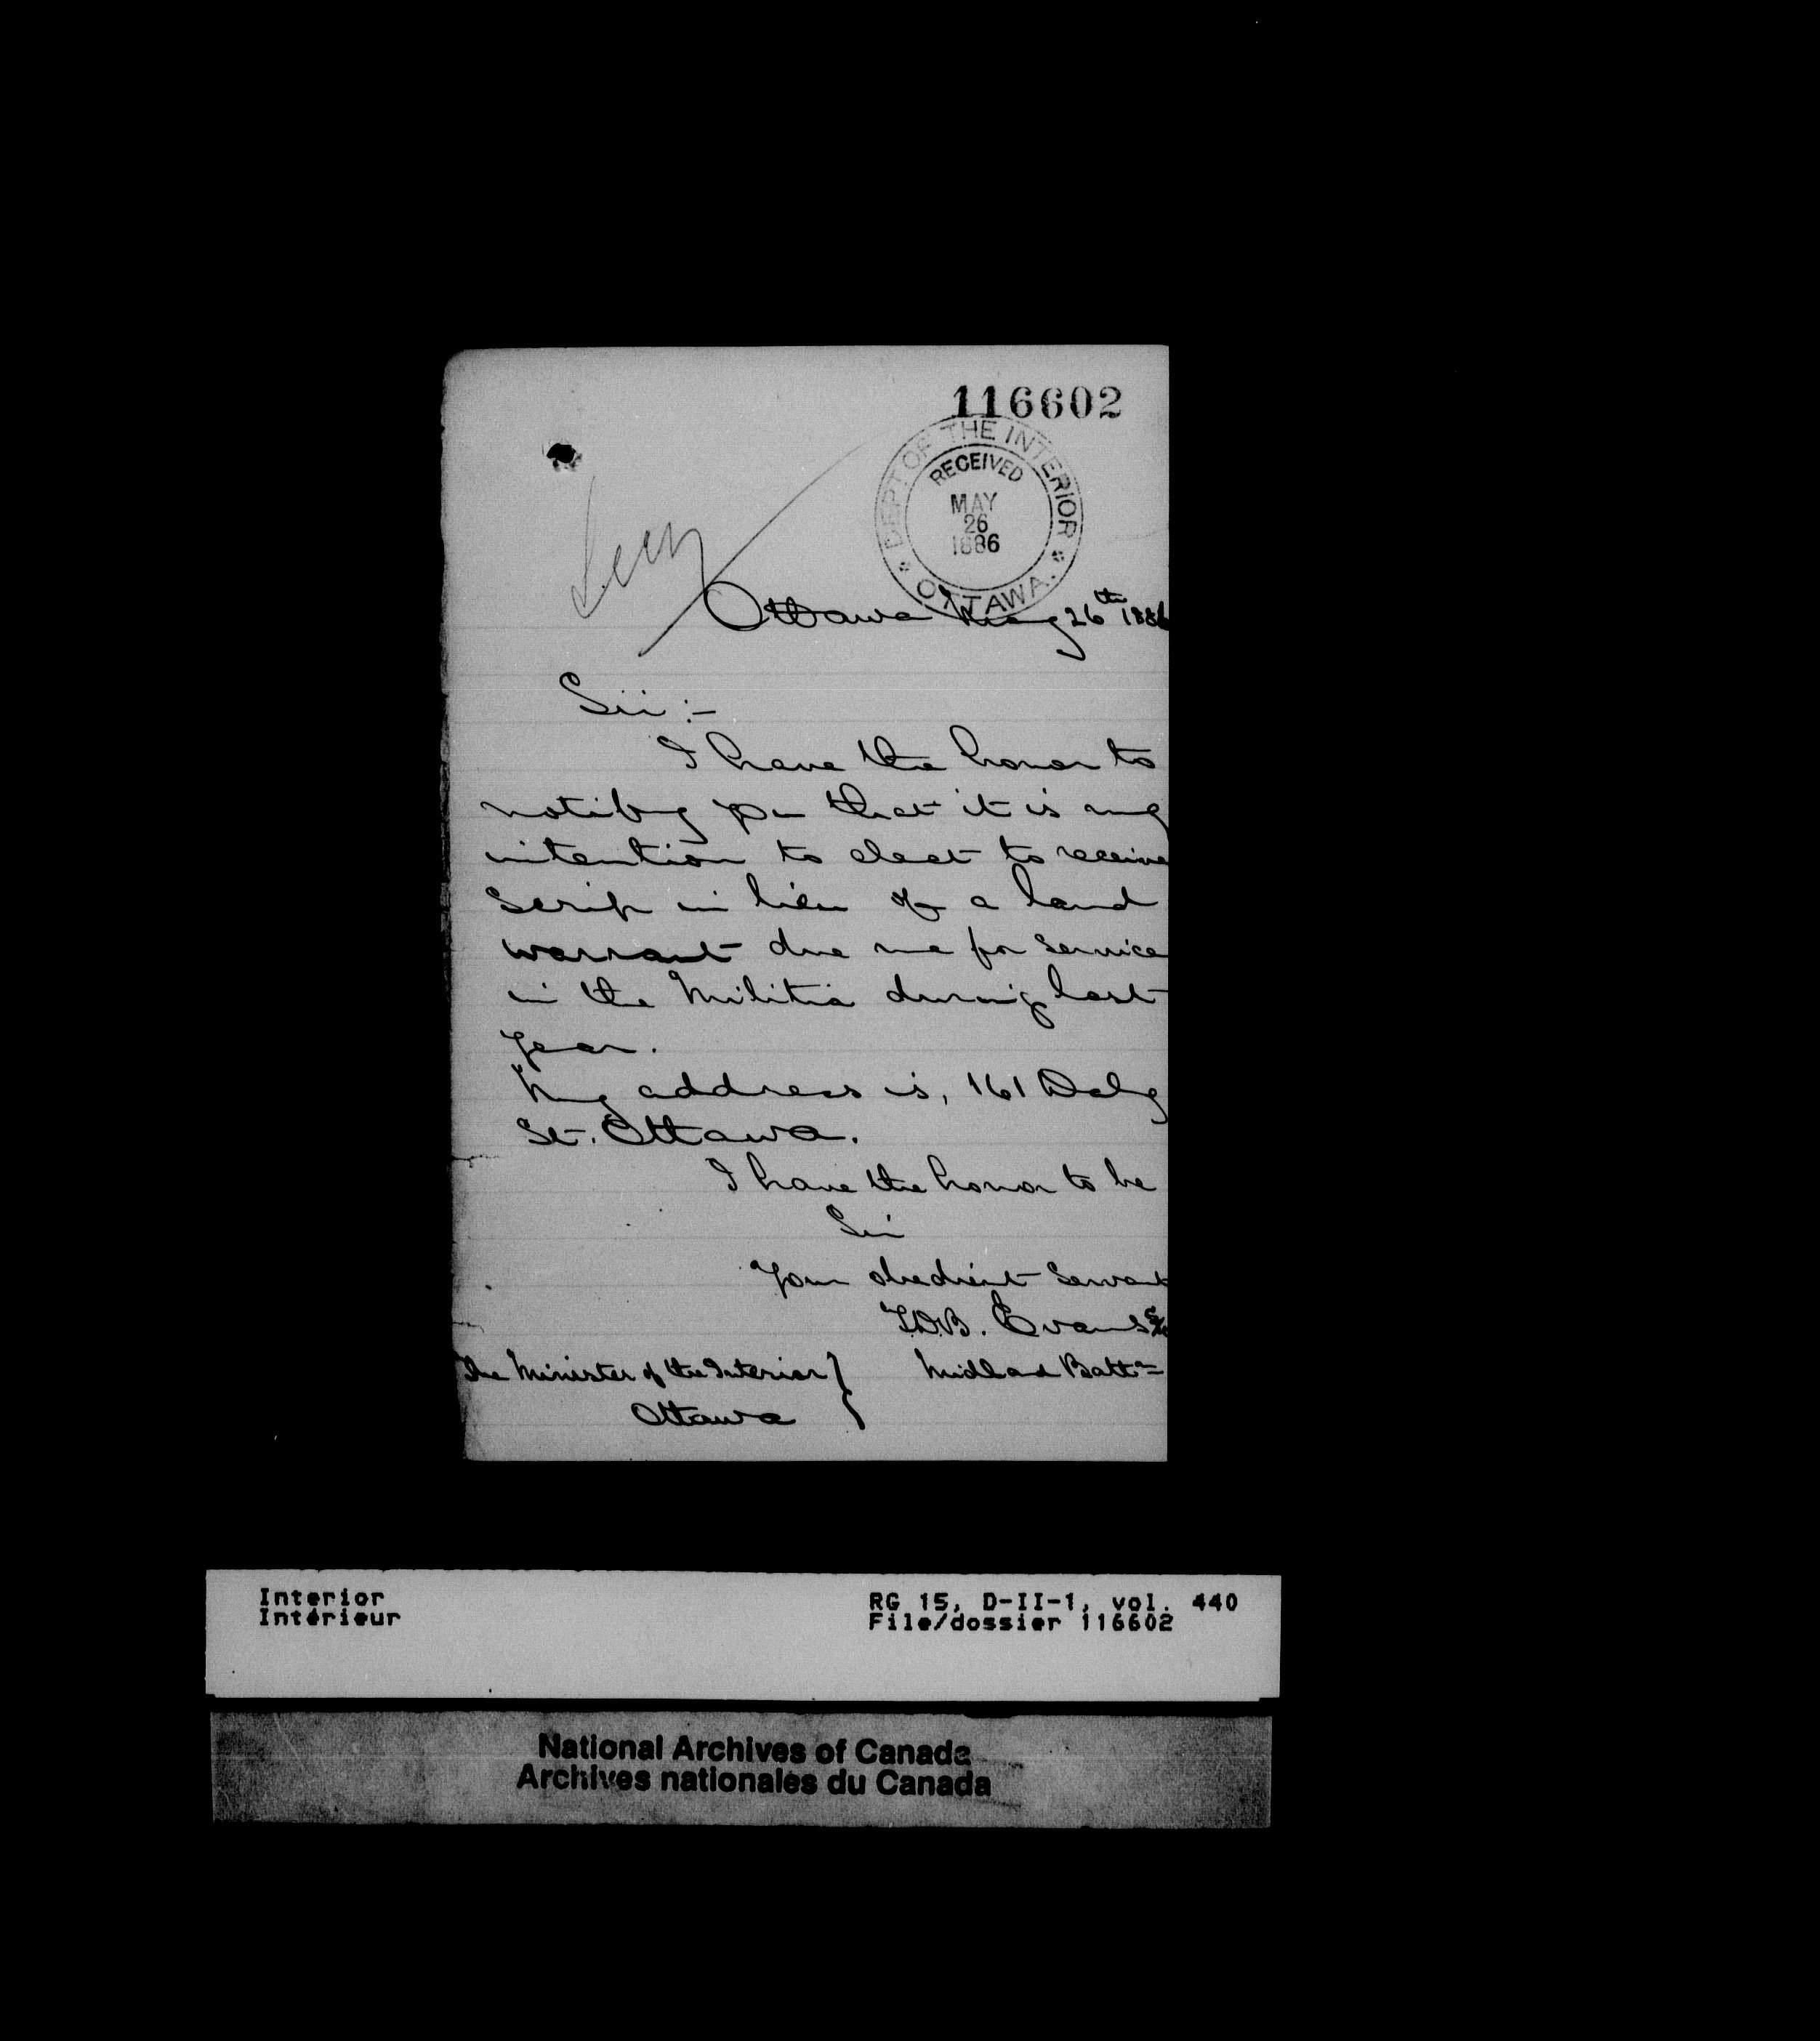 116602
DEPT OF THE INTERIOR
RECEIVED
MAY
26
1886
OTTAWA.
Secy
Ottawa May 26th 1886
Sir :-
I have the honor to
notify you that it is my
intention to elect to receive
Scrip in lieu of a land
warrant due me for service
in the Militia during last
year.
My address is, 161 Daly
St. Ottawa.
I have the honor to be
Sir
Your obedient Servant
T.D.B. Evans
The Minister of the Interior }
Midland Battn
Ottawa
Interior
Intérieur
RG 15, D-II-1, vol. 440
File/dossier 116602
National Archives of Canada
Archives nationales du Canada